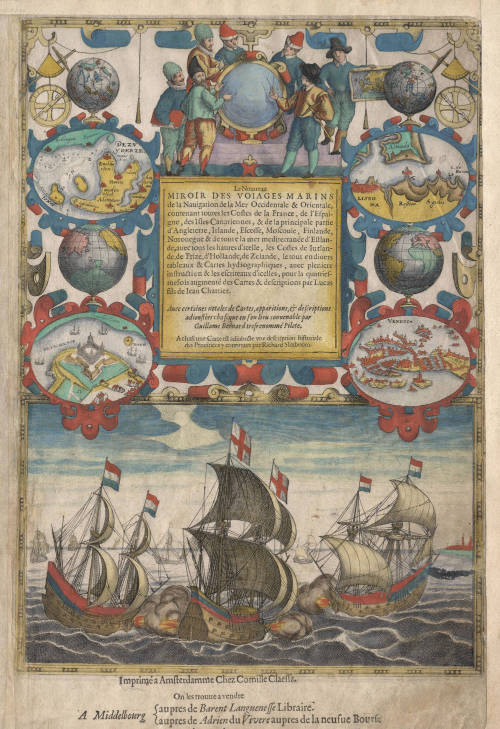 Le Nouveau
MIROIR DES VOIAGES MARINS
de la Navigation de la Mer Occidentale & Orientale,
contenant toutes les Costes de la France, de l'Espai-
gne, des Isles Canariennes, & de la principale partie
d'Angleterre, Irlande, Escosse, Moscovie, Finlande,
Norouegue & de toute la mer mediterranée d'Estlan-
de, avec tous les havres d'icelle, les Costes de Iutlan-
de, de Frize, d'Hollande, de Zelande, le tout en divers
tableaux & Cartes hydrographiques, avec pleniere
instruction & les escriteaux d'icelles, pour la quatries-
me fois augmenté des Cartes & descriptions par Lucas
fils de Jean Chartier.
Avec certaines
de Cartes, apparitions, & descriptions
chasque en son lieu convenable par
Guillame Bernard tresrenommé Pilote.
description historiale
par Richard Slotboom
VENETIA
Imprimé a Amsterdamme Chez Cornille Claesse.
On les trouve a vendre
A Middelbourg
aupres de Barent Langenesse Libraire.
aupres de Adrien du Vivere aupres de la neufue Bourse